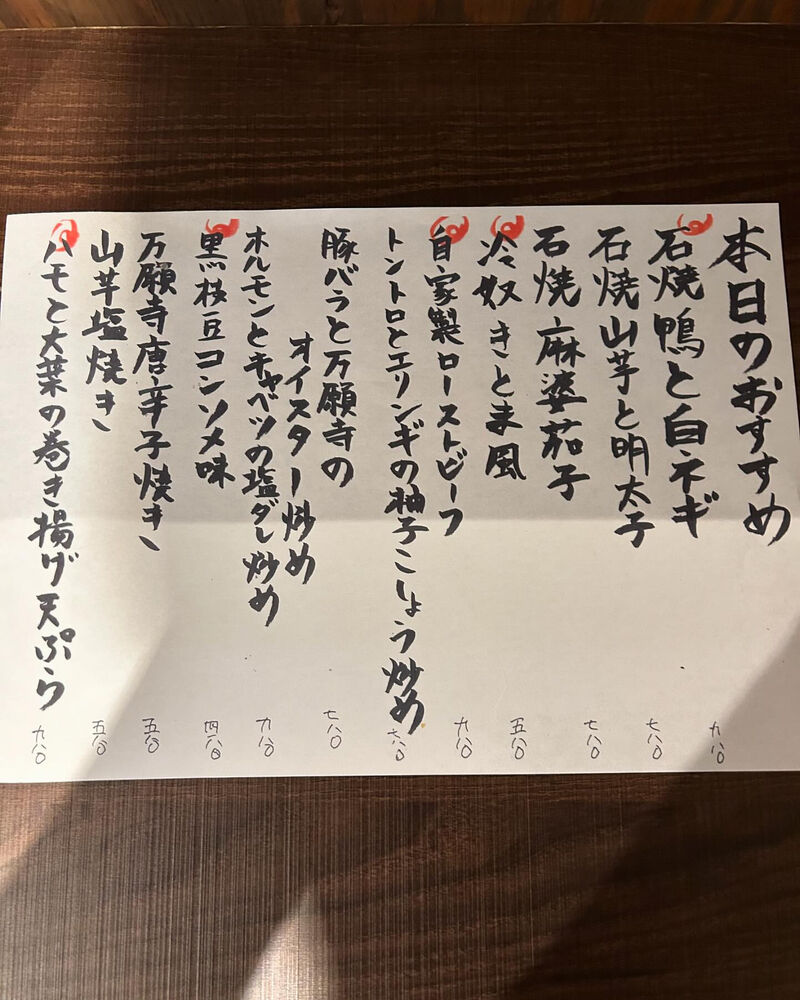 本日のおすすめ
石焼鴨と白ネギ
九八〇
石焼山芋と明太子
七八〇
石焼麻婆茄子
七八〇
冷奴きとま風
五八〇
自家製ローストビーフ
九八〇
トントロとエリンギの柚子こしょう炒め
七八〇
豚バラと万願寺の
オイスター炒め
七八〇
ホルモンとキャベツの塩ダレ炒め
九八〇
黒枝豆コンソメ味
四八〇
万願寺唐辛子焼き
五八〇
山芋塩焼き
五八〇
ハモと大葉の巻き揚げ天ぷら
九八〇